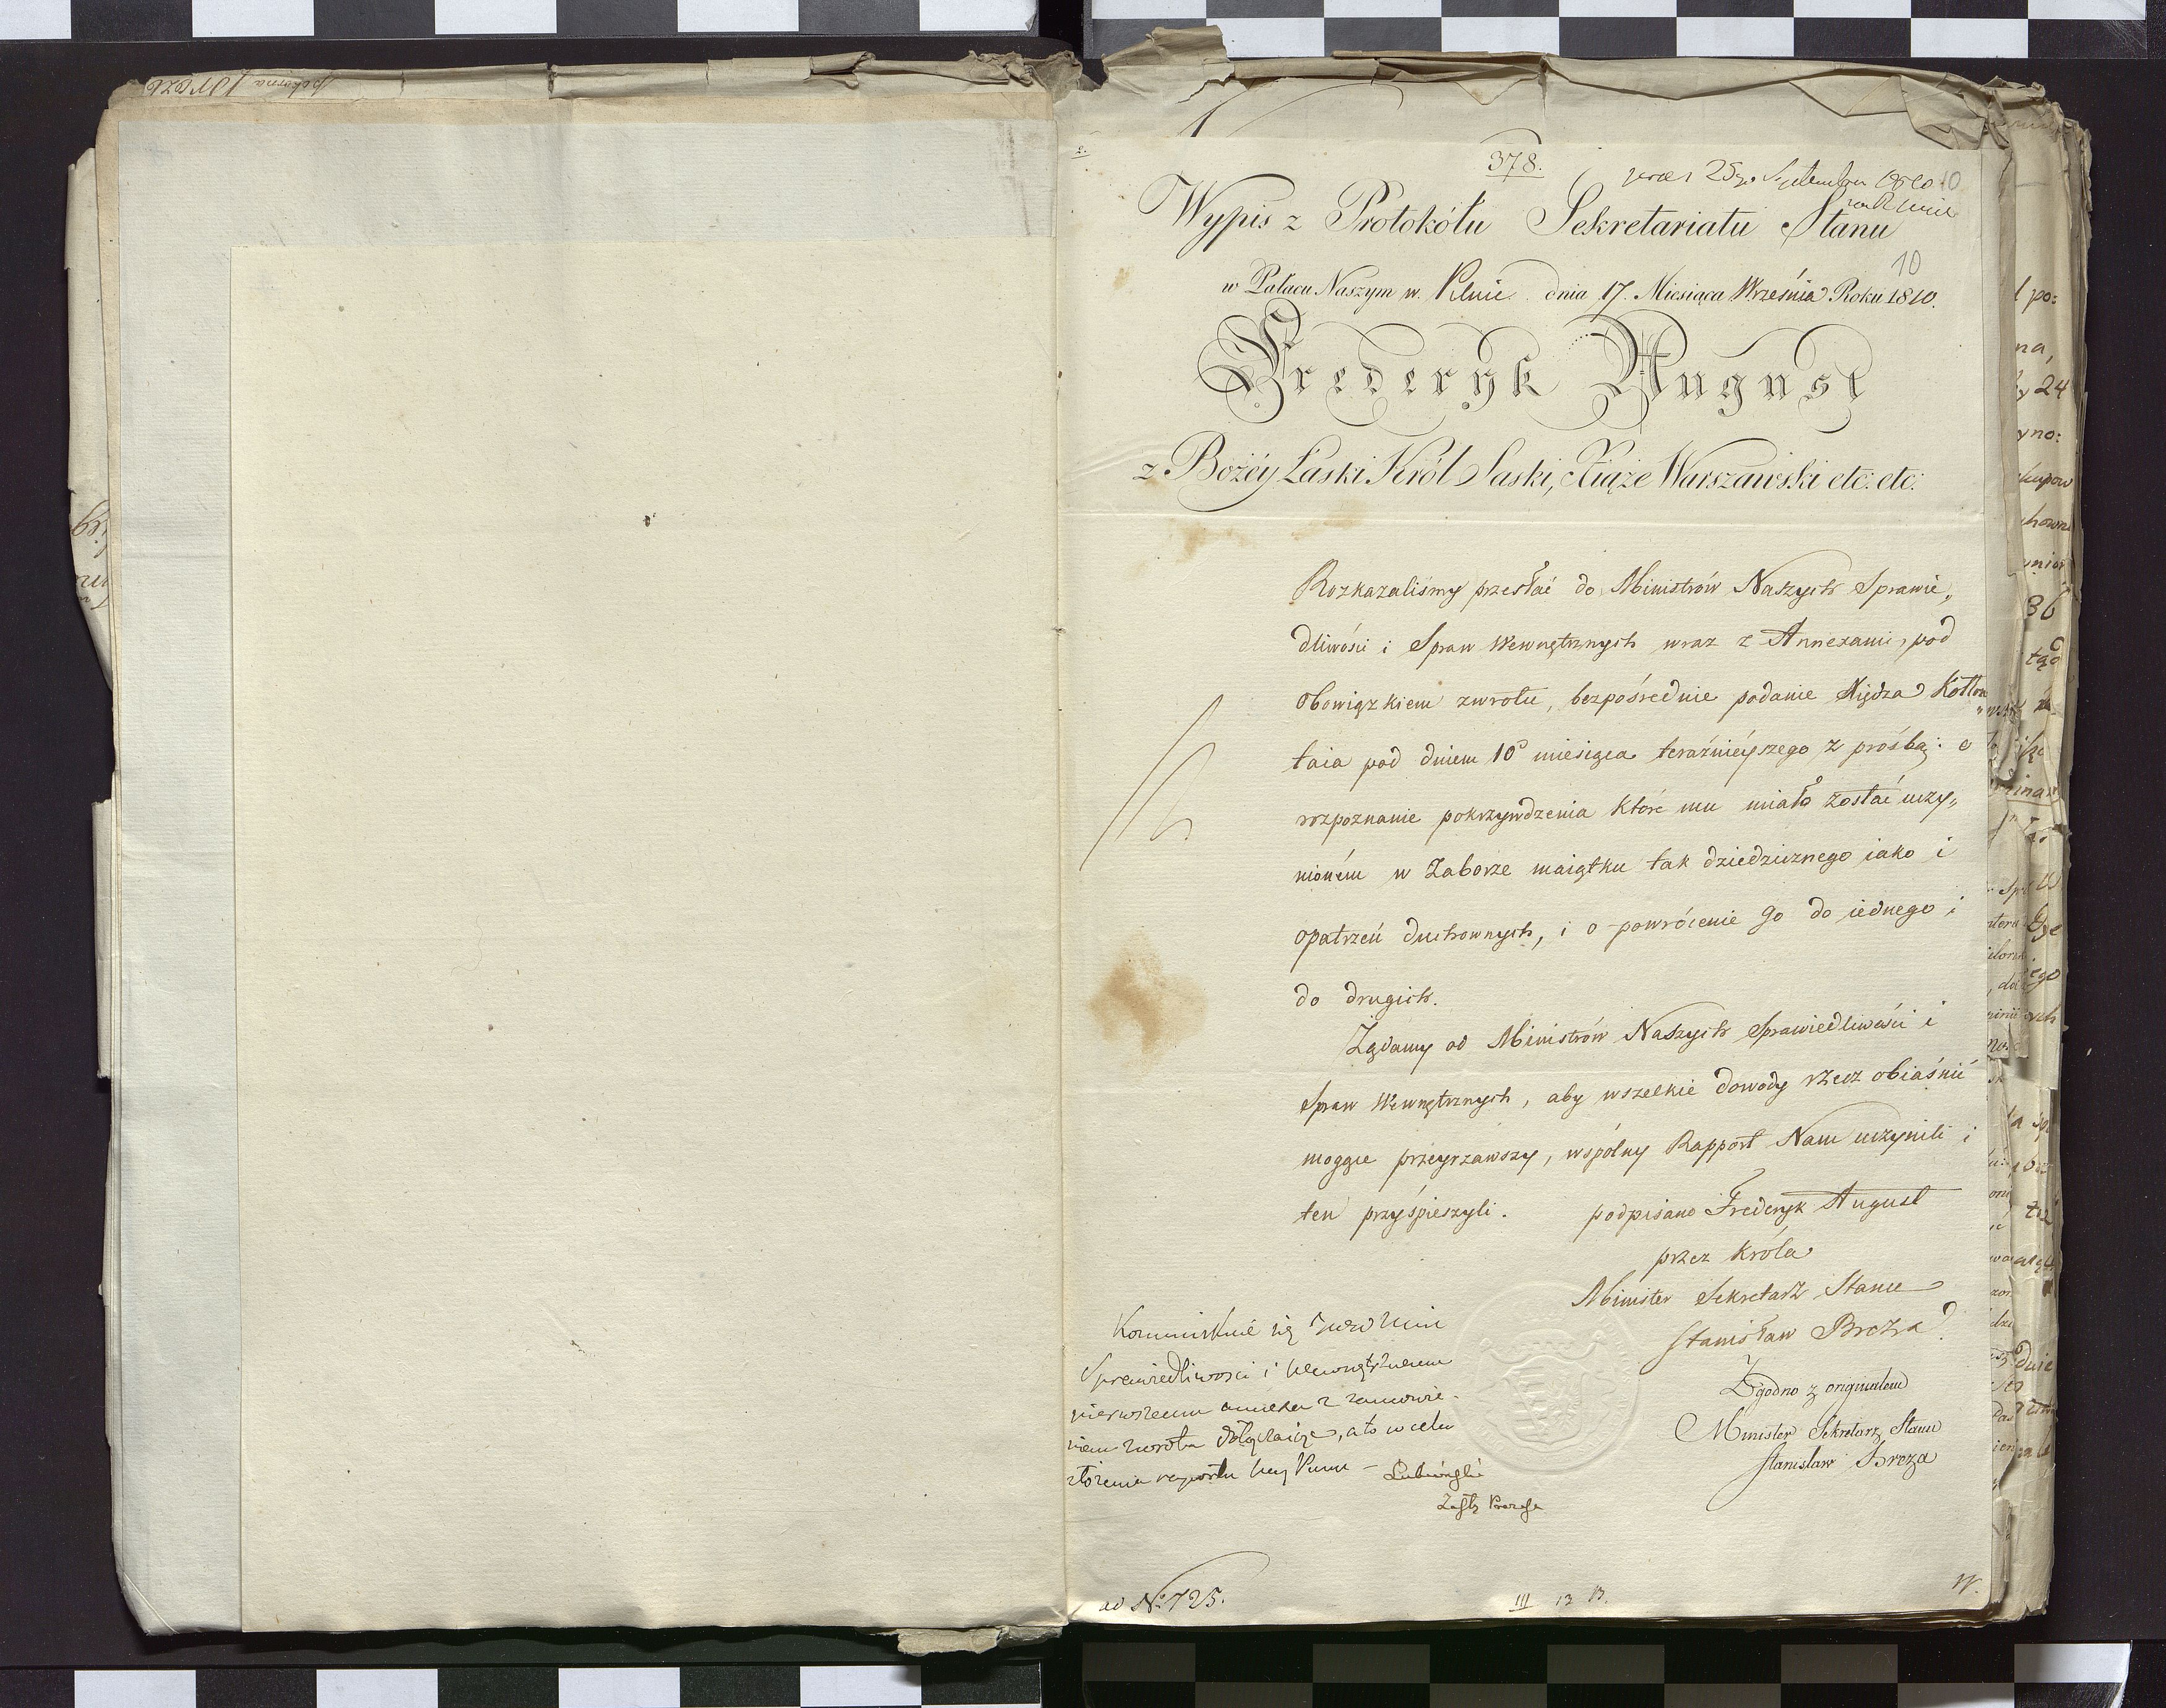 378.
25go Septembra 1810
Wypis z Protokółu Sekretariatu Stanu
10
w Pałacu Naszym w. Pilnic dnia 17. Miesiąca Września Roku 1810.
Frederyk August
z Bożéy Łaski Król Saski, Xiąże Warszawski etc: etc:
Rozkazaliśmy przesłać do Ministrów Naszych Sprawie„
dliwości i Spraw Wewnętrznych wraz z Annexami, pod
obowiązkiem zwrotu, bezpośrednie podanie Xiędza Kołłon
taia pod dniem 10º miesiąca teraźnieyszego z prośbą: o
rozpoznanie pokrzywdzenia które mu miało zostać uczy„
nioném w Zaborze maiątku tak dziedzicznego iako i
opatrzeń duchownych, i o powrócenie go do iednego i
do drugich.
Żądamy od Ministrów Naszych Sprawiedliwości i
Spraw Wewnętrznych, aby wszelkie dowody rzecz obiaśnić
mogące przeyrzawszy, wspólny Rapport Nam uczynili i
ten przyśpieszyli.
podpisano Frederyk August
przez Króla
Minister Sekretarz Stanu
Stanisław Breza
Zgodno z originałem
Minister Sekretarz Stanu
Stanisław Breza
Kommunikuie się
Sprawiedliwosci i Wewnętrznemu
pierwszemu annexa z zamówie-
niem zwrotu dołączaiąc, a to w celu
złożenia raportu
Łubieński
Zastę Prezesa
ad No. 725.
III 13 B.